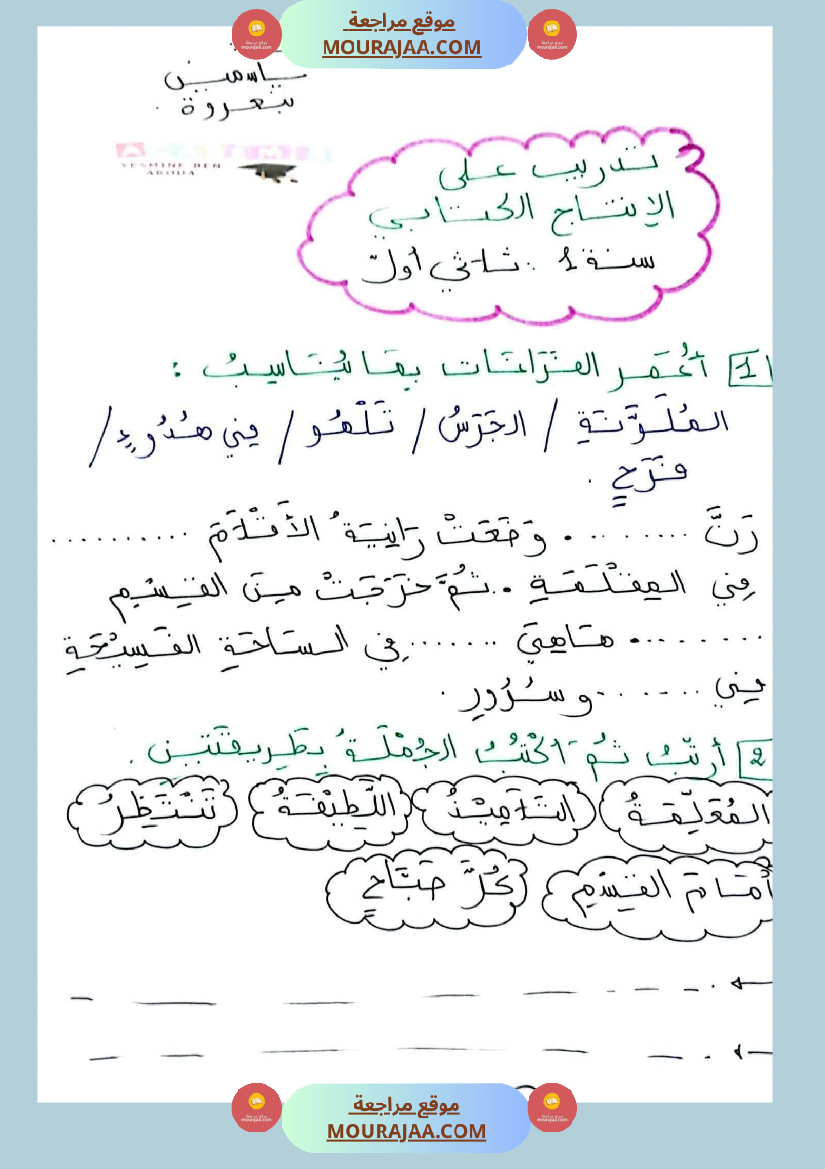 موقع مراجعة
MOURAJAA.COM
ياسمين
بنعروة
YESMINE BEN
AROUA
تدريب على
الإنتاج الكتابي
سنة 1 : ثلاثي أول
1 أُعَمِّر الفَرَاغَات بِمَا يُنَاسِبُ :
المُلَوَّنَةِ / الجَرَسُ / تَلْهُو / فِي هُدُوءٍ /
فَرَحٍ .
رَنَّ ......... . وَضَعَتْ رَانِيَةُ الأَقْلَامَ ..........
فِي المِقْلَمَةِ . ثُمَّ خَرَجَتْ مِنَ القِسْمِ
......... . هَاهِيَ ....... فِي السَاحَةِ الفَسِيْحَةِ
فِي ....... وَ سُرُورٍ .
2 أُرَتِّبُ ثُمَّ أَكْتُبُ الجُمْلَةَ بِطَرِيقَتَيْنِ .
المُعَلِّمَةُ التَلَامِيْذُ اللَّطِيْفَةُ تَنْتَظِرُ
أَمَامَ القِسْمِ كُلَّ صَبَاحٍ
موقع مراجعة
MOURAJAA.COM